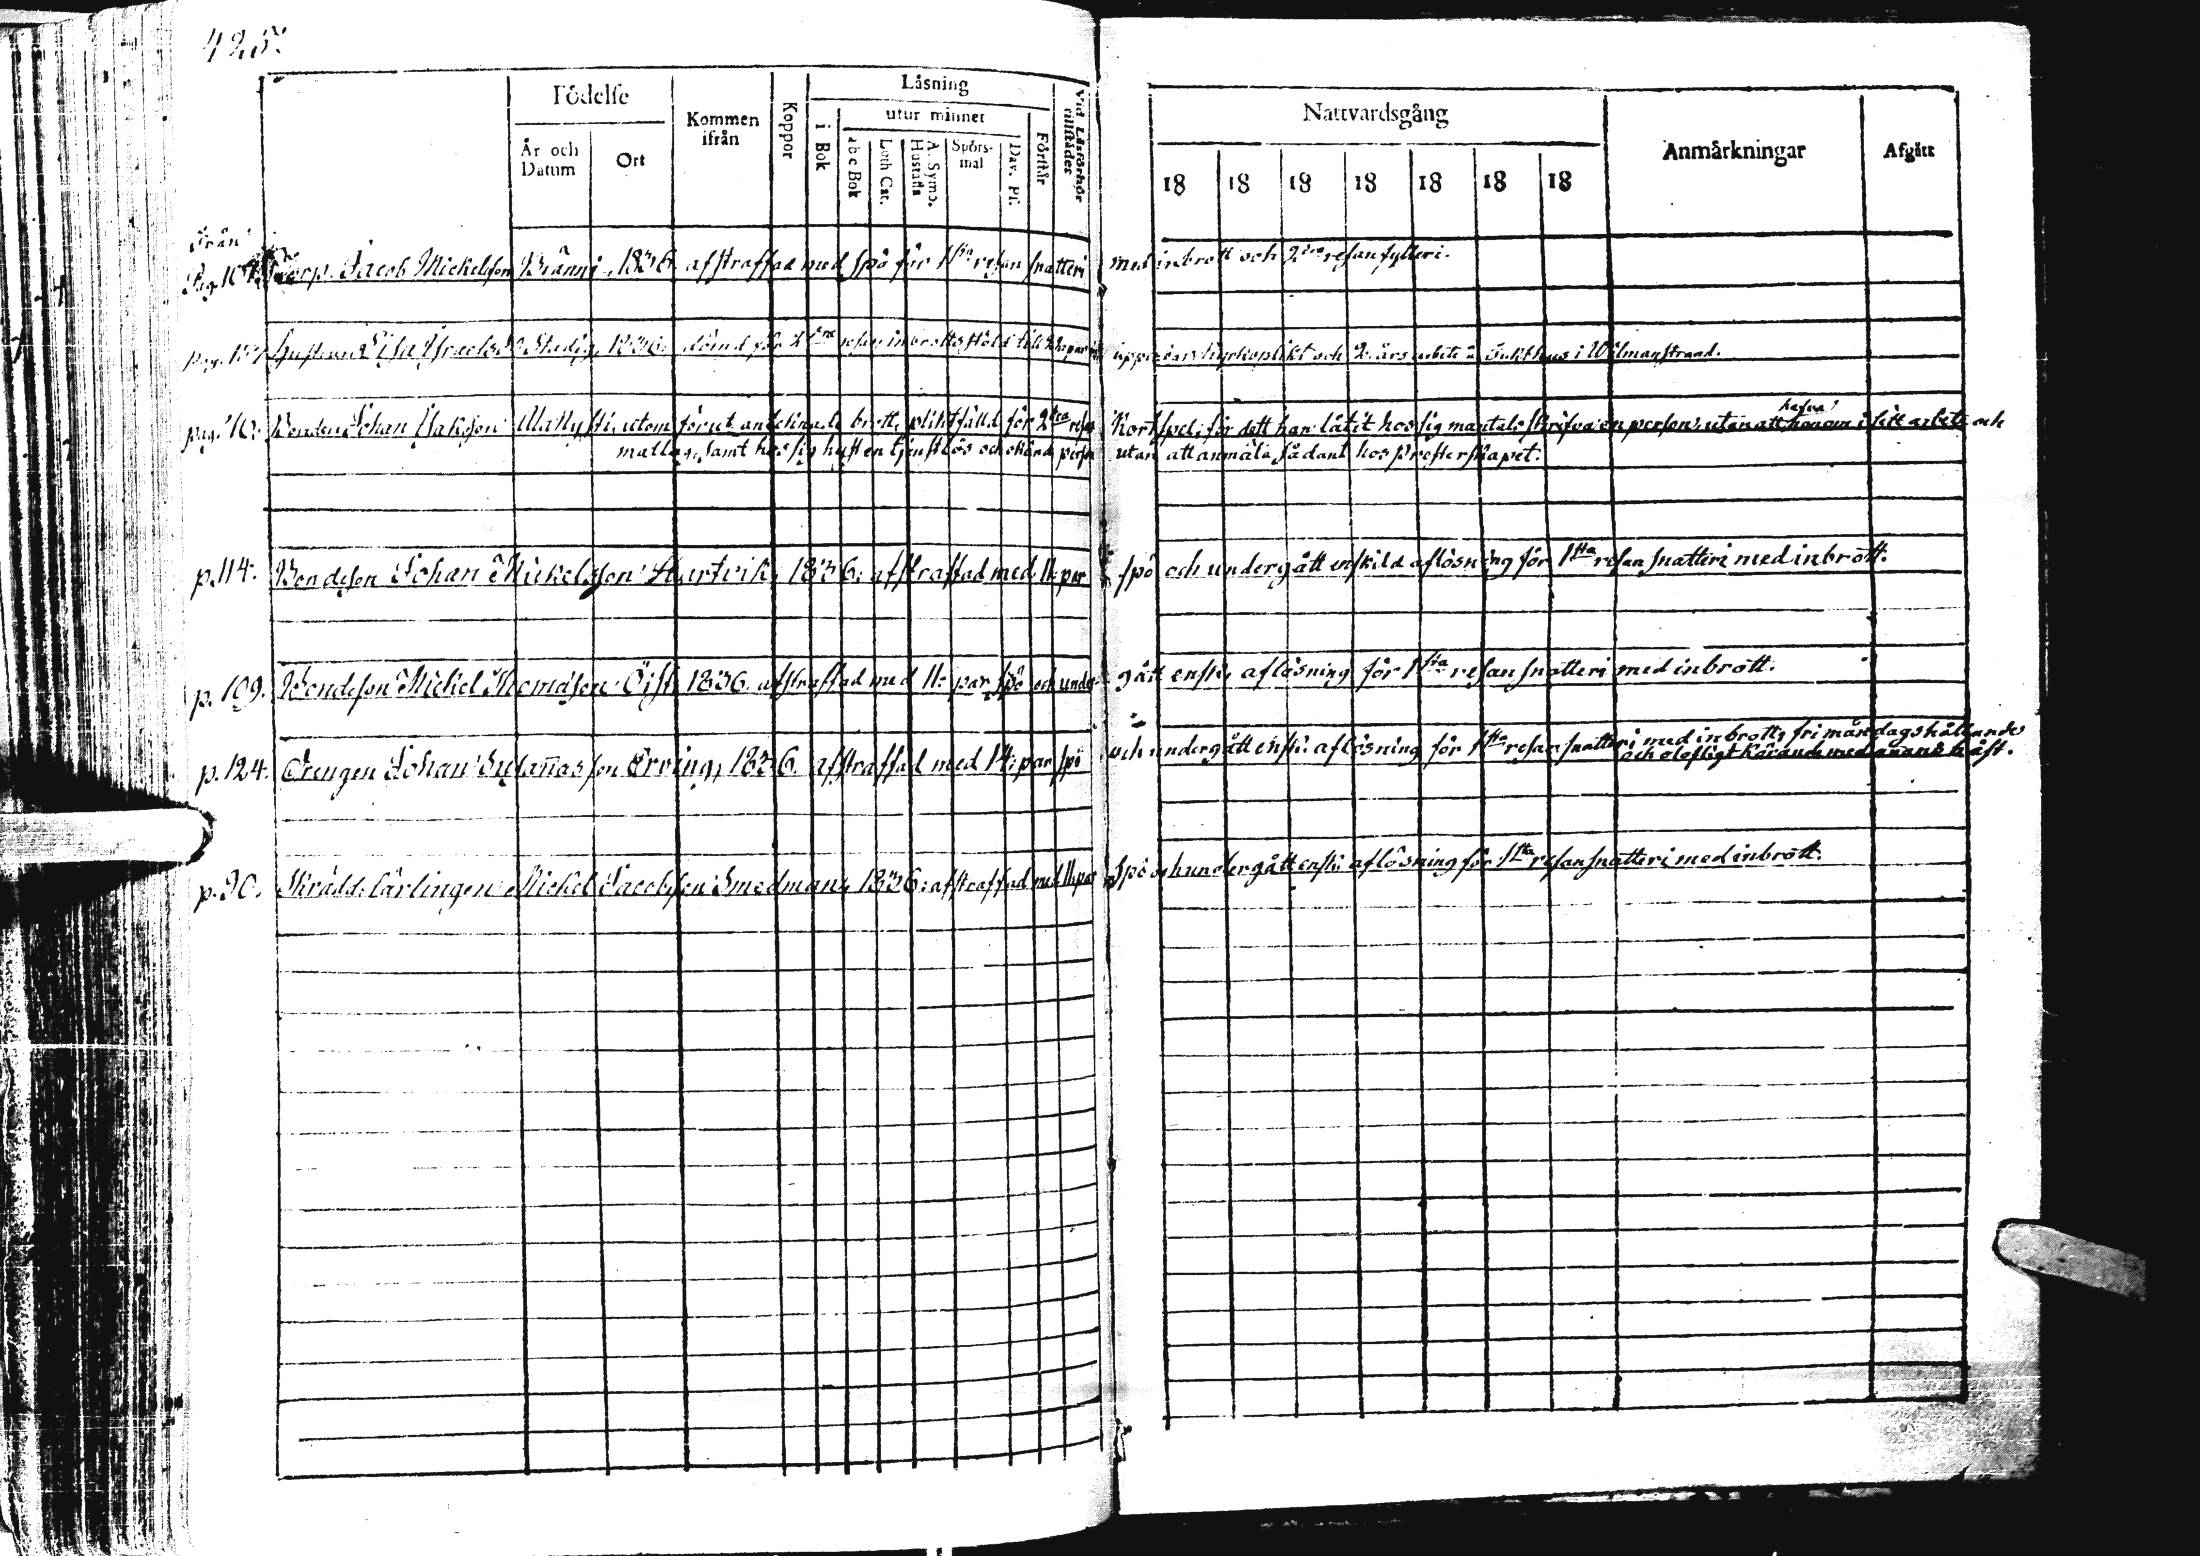 425.
Födelse
Kommen ifrån
Koppor
Läsning
Vid Läsförhör tillstädes
Nattvardsgång
Anmärkningar
Afgått
År och Datum
Ort
i Bok
utur minnet
Förstår
abc Bok
Luth Cat.
A. Symb. Hustafla
Spörsmål
Dav. Ps.
18 18 18 18 18 18 18
Från
Pag. 107. Jacob Mickelsson Bränni, 1836. afstraffad med spö för 1sta resan snatteri med inbrott och 2dra resan fylleri.
pag. Lisa Israelsd. Stadig, 1836. dömd för 2dra resan inbrotts stöld till par ris uppenbar kyrkoplikt och 2 års arbete å Tukthus i Wilmanstrand.
pag. Bonden Johan Isaksson Mattysti, utom förut antecknade brott, pliktfälld för 2dra resan Kortspel, för dett han låtit hos sig mantals skrifva en person, utan att hafva honom i sitt arbete och
matlag, samt hos sig haft en tjenstlös och okänd person utan att anmäla sådant hos Presterskapet.
p. 114. Bondeson Johan Mickelsson Hartvik, 1836. afstraffad med 11. par spö och undergått enskild aflösning för 1sta resan snatteri med inbrott.
p. 109. Bondeson Mickel Thomasson Öist, 1836. afstraffad med 11. par spö och undergått ensk. aflösning för 1sta resan snatteri med inbrott.
p. 124. Drengen Johan Susannasson Erving, 1836. afstraffad med 14. par spö och undergått ensk. aflösning för 1sta resan snatteri med inbrott, frimåndagshållande
och olofligt körande med annans häst.
p. 90. Skrädd. lärlingen Mickel Jacobsson Smedman, 1836. afstraffad med 11. par spö och undergått ensk. aflösning för 1sta resan snatteri med inbrott.